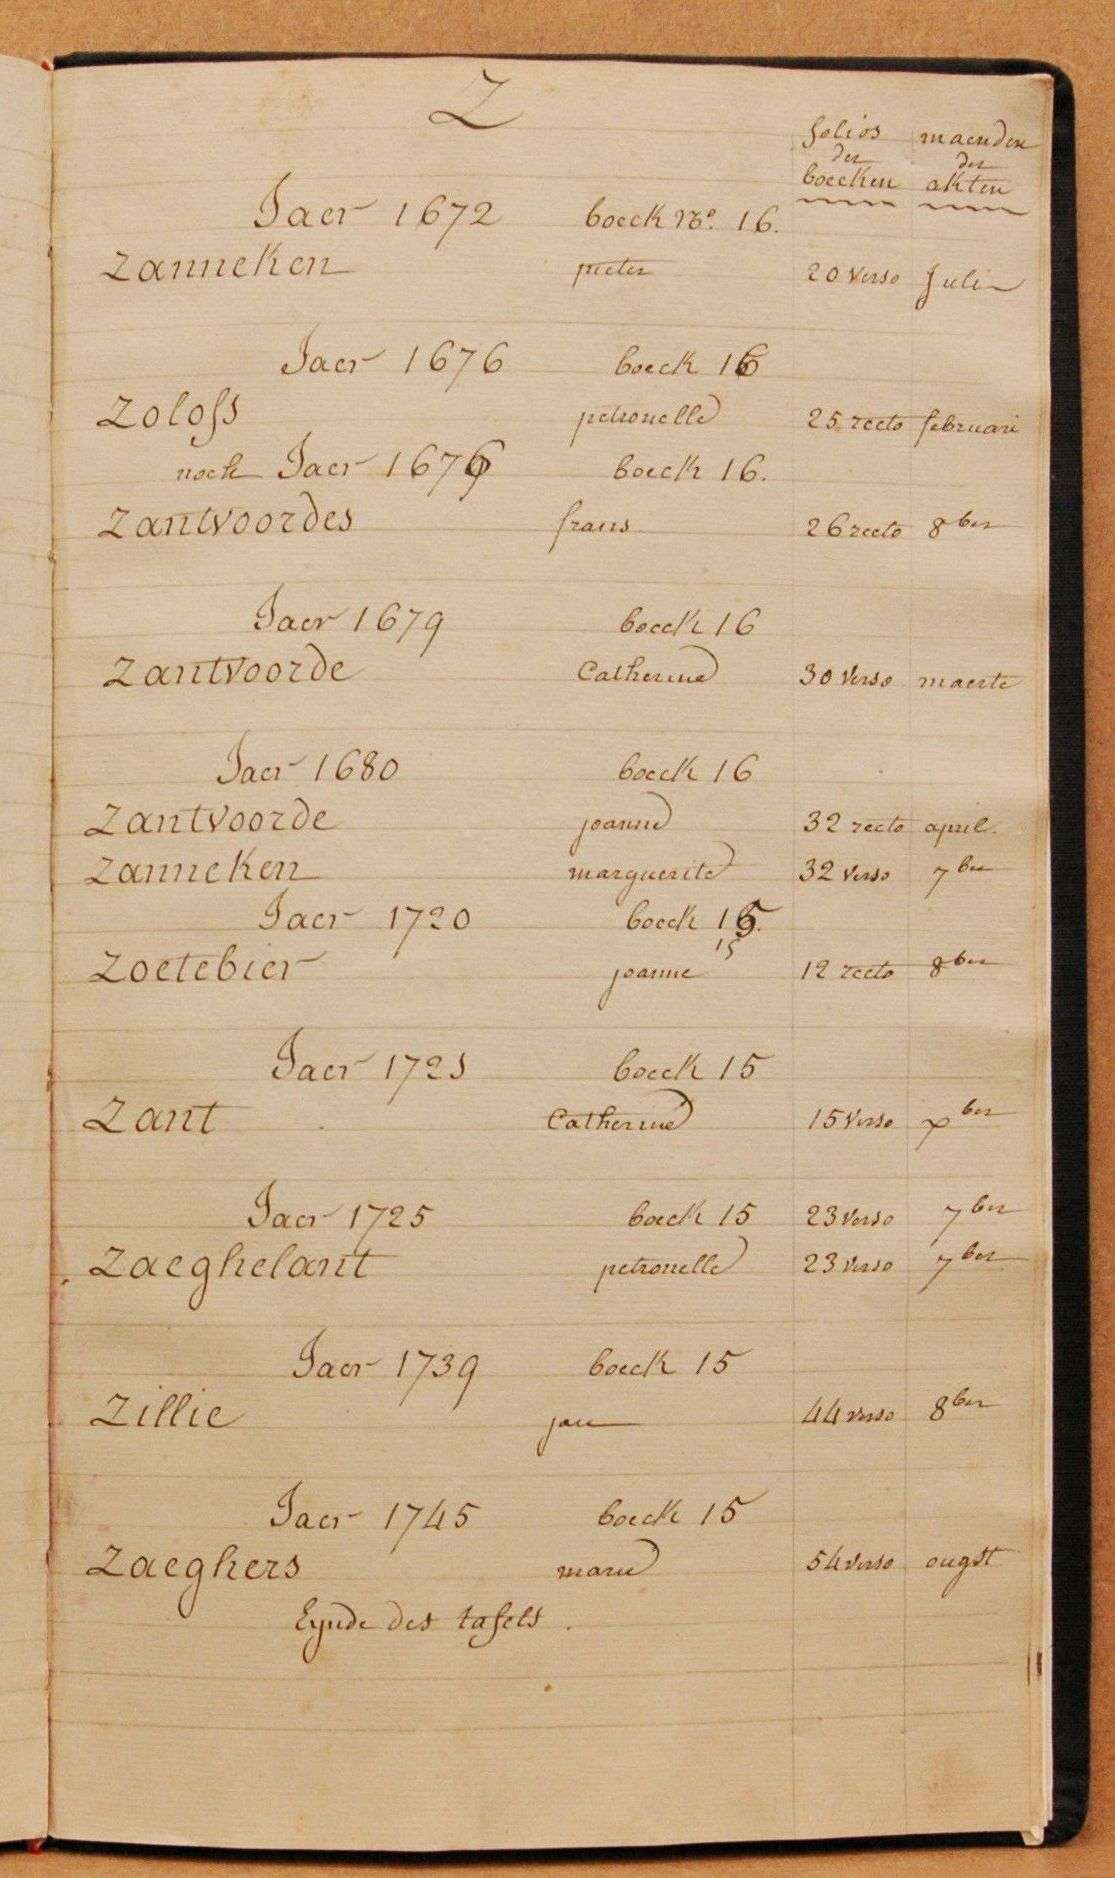 Z
folios maenden
der der
boecken akten
Jaer 1672 boeck No. 16.
Zanneken pieter 20 verso Juli
Jaer 1676 boeck 16
Zoloss petronelle 25 recto februari
noch Jaer 1676 boeck 16.
Zantvoordes frans 26 recto 8ber
Jaer 1679 boeck 16
Zantvoorde Catherine 30 verso maerte
Jaer 1680 boeck 16
Zantvoorde joanne 32 recto april.
Zanneken marguerite 32 verso 7ber
Jaer 1720 boeck 15.
15
Zoetebier joanne 12 recto 8ber
Jaer 1721 boeck 15
Zant Catherine 15 verso xber
Jaer 1725 boeck 15 23 verso 7ber
Zaeghelant petronelle 23 verso 7ber
Jaer 1739 boeck 15
Zillie jan 44 verso 8ber
Jaer 1745 boeck 15
Zaeghers marie 54 verso ougst
Eynde des tafels.